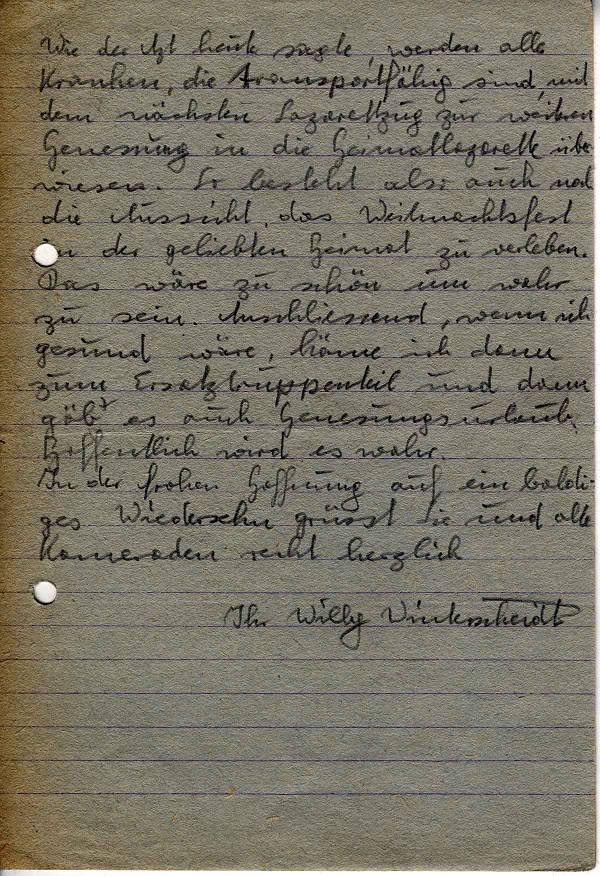 Wie der Azt heute sagte, werden alle
Kranken, die transportfähig sind, mit
dem nächsten Lazarettzug zur weiteren
Genessung in die Heimatlazarette über-
wiesen. So besteht also auch noch
die Aussicht, das Weihnachtsfest
in der geliebten Heimat zu verleben.
Das wäre zu schön um wahr
zu sein. Anschliessend, wenn ich
gesund wäre, käme ich dann
zum Ersatztruppenteil und dann
gäb' es auch Genesungsurlaub.
Hoffentlich wird es wahr.
In der frohen Hoffnung auf ein baldi-
ges Wiedersehn grüsst Sie und alle
Kameraden recht herzlich
Ihr Willy Winkscheidt